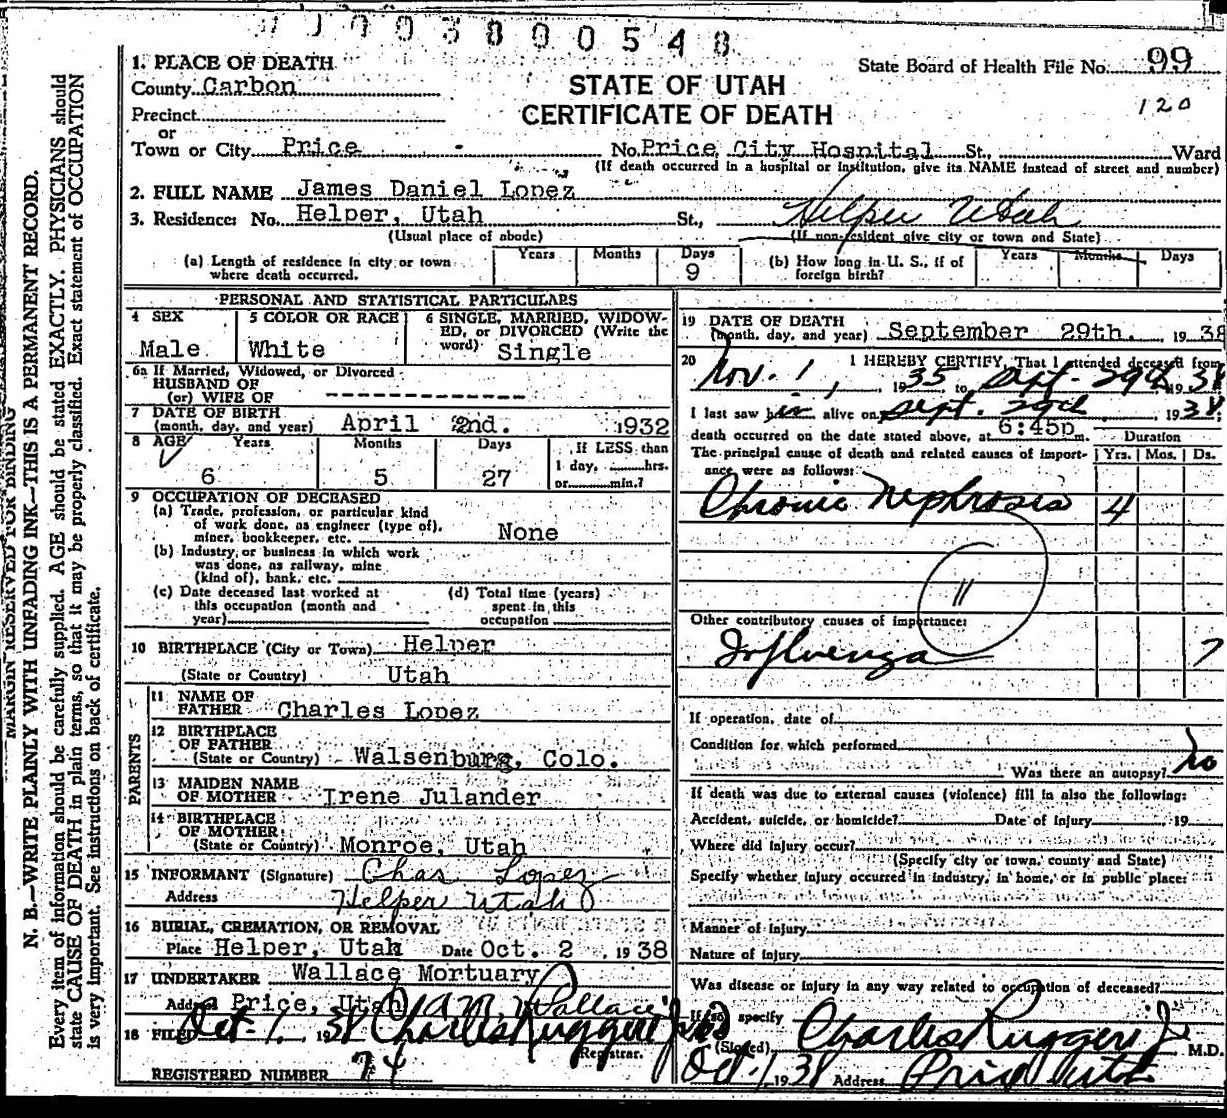 3800548
1. PLACE OF DEATH
State Board of Health File No. 99
County Carbon
STATE OF UTAH
120
Precinct
CERTIFICATE OF DEATH
or
Town or City Price No. Price City Hospital St., Ward
(If death occurred in a hospital or institution, give its NAME instead of street and number)
2. FULL NAME James Daniel Lopez
3. Residence: No. Helper, Utah St., Helper Utah
(Usual place of abode) (If non-resident give city or town and State)
(a) Length of residence in city or town where death occurred. Years Months Days 9
(b) How long in U. S., if of foreign birth? Years Months Days
PERSONAL AND STATISTICAL PARTICULARS
4 SEX Male
5 COLOR OR RACE White
6 SINGLE, MARRIED, WIDOWED, or DIVORCED (Write the word) Single
6a If Married, Widowed, or Divorced
HUSBAND OF
(or) WIFE OF ----------------
7 DATE OF BIRTH
(month, day, and year) April 2nd. 1932
8 AGE Years Months Days If LESS than
1 day, hrs.
6 5 27 or min.?
9 OCCUPATION OF DECEASED
(a) Trade, profession, or particular kind
of work done, as engineer (type of),
miner, bookkeeper, etc. None
(b) Industry or business in which work
was done, as railway, mine
(kind of), bank, etc.
(c) Date deceased last worked at
this occupation (month and
year)
(d) Total time (years)
spent in this
occupation
10 BIRTHPLACE (City or Town) Helper
(State or Country) Utah
PARENTS
11 NAME OF
FATHER Charles Lopez
12 BIRTHPLACE
OF FATHER
(State or Country) Walsenburg, Colo.
13 MAIDEN NAME
OF MOTHER Irene Julander
14 BIRTHPLACE
OF MOTHER
(State or Country) Monroe, Utah
15 INFORMANT (Signature) Chas Lopez
Address Helper Utah
16 BURIAL, CREMATION, OR REMOVAL
Place Helper, Utah Date Oct. 2, 1938
17 UNDERTAKER Wallace Mortuary
Address Price, Utah Wallace
18 FILED Oct-1, 1938 Charles Ruggeri Jr
Registrar.
REGISTERED NUMBER 74
19 DATE OF DEATH
(month, day, and year) September 29th. 1938
20 I HEREBY CERTIFY, That I attended deceased from
Nov. 1, 1935 to Sept. 29th 1938
I last saw him alive on Sept. 29th, 1938,
death occurred on the date stated above, at 6:45p m.
Duration
The principal cause of death and related causes of importance were as follows: Yrs. Mos. Ds.
Chronic Nephrosis 4
11
Other contributory causes of importance:
Influenza 7
If operation, date of
Condition for which performed
Was there an autopsy? No
If death was due to external causes (violence) fill in also the following:
Accident, suicide, or homicide? Date of injury , 19
Where did injury occur?
(Specify city or town, county and State)
Specify whether injury occurred in industry, in home, or in public place:
Manner of injury
Nature of injury
Was disease or injury in any way related to occupation of deceased?
If so, specify
(Signed) Charles Ruggeri Jr M.D.
Oct-1, 1938 Address Price Utah
MARGIN RESERVED FOR BINDING
N. B.—WRITE PLAINLY WITH UNFADING INK—THIS IS A PERMANENT RECORD.
Every item of information should be carefully supplied. AGE should be stated EXACTLY. PHYSICIANS should
state CAUSE OF DEATH in plain terms, so that it may be properly classified. Exact statement of OCCUPATION
is very important. See instructions on back of certificate.